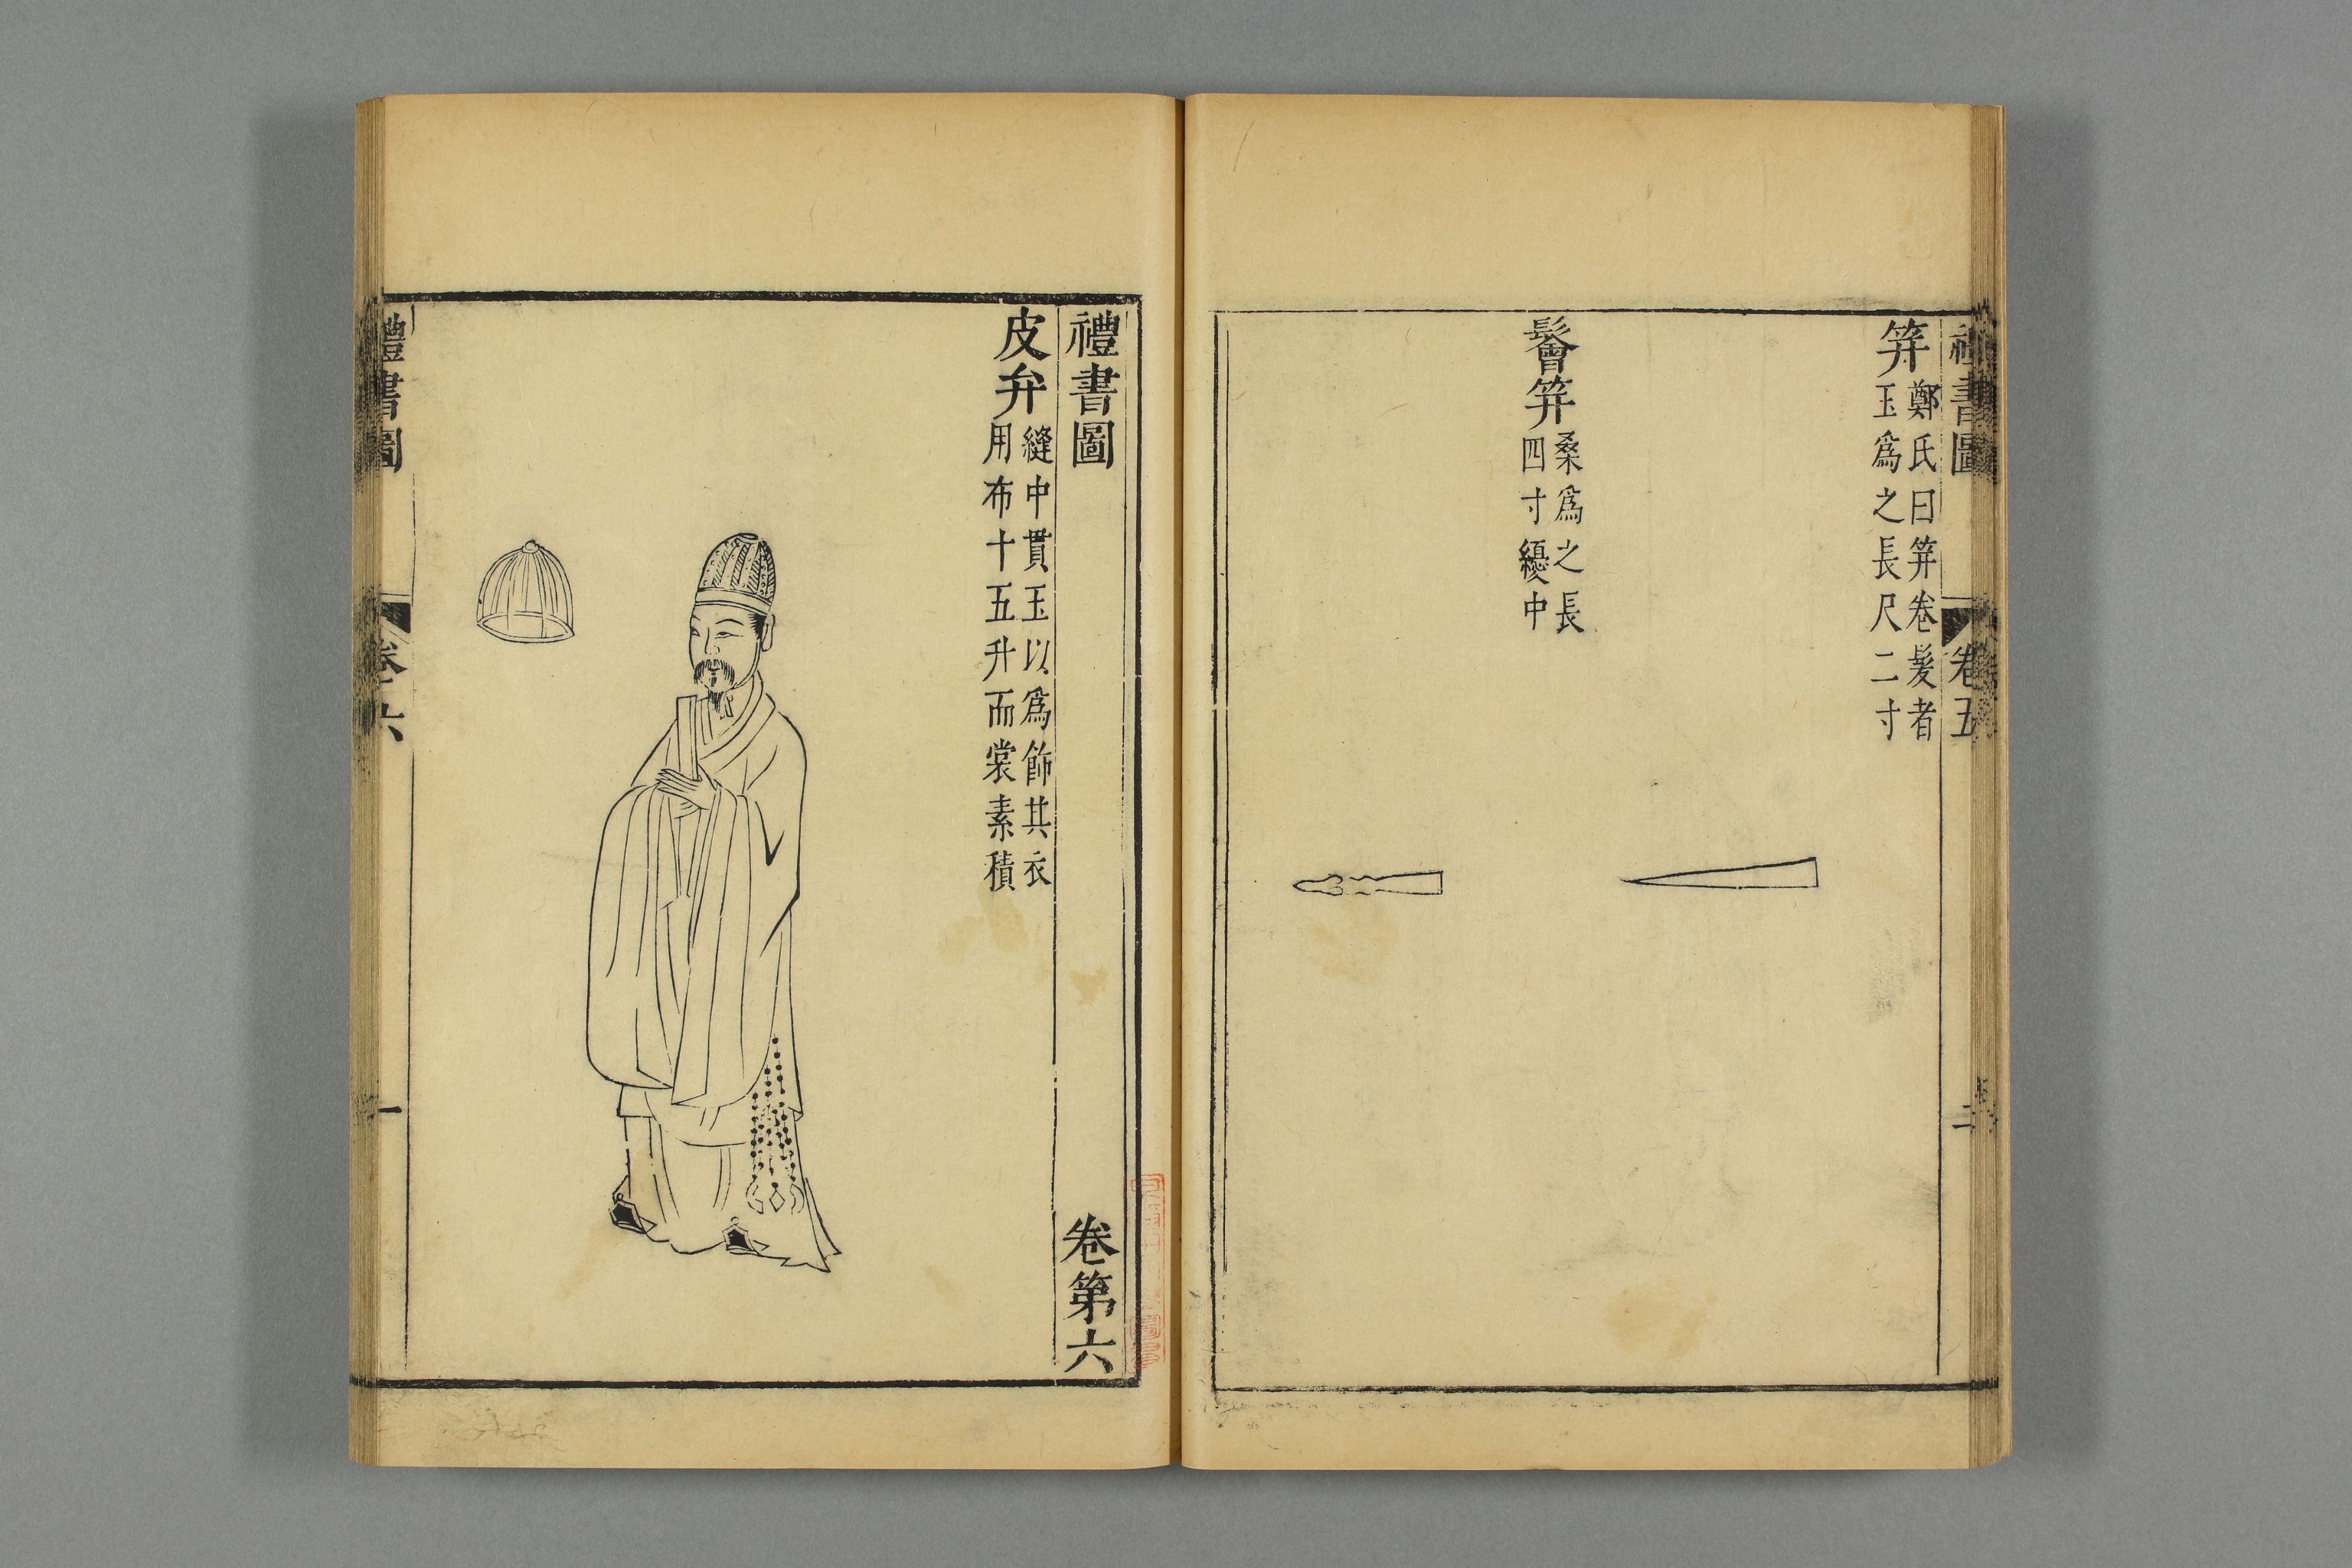 禮書圖 卷五 二
笄 鄭氏曰笄卷髮者
玉爲之長尺二寸
鬠笄 桑爲之長
四寸纋中
禮書圖 卷第六
皮弁 縫中貫玉以爲飾其衣
用布十五升而裳素積
禮書圖 卷六 一